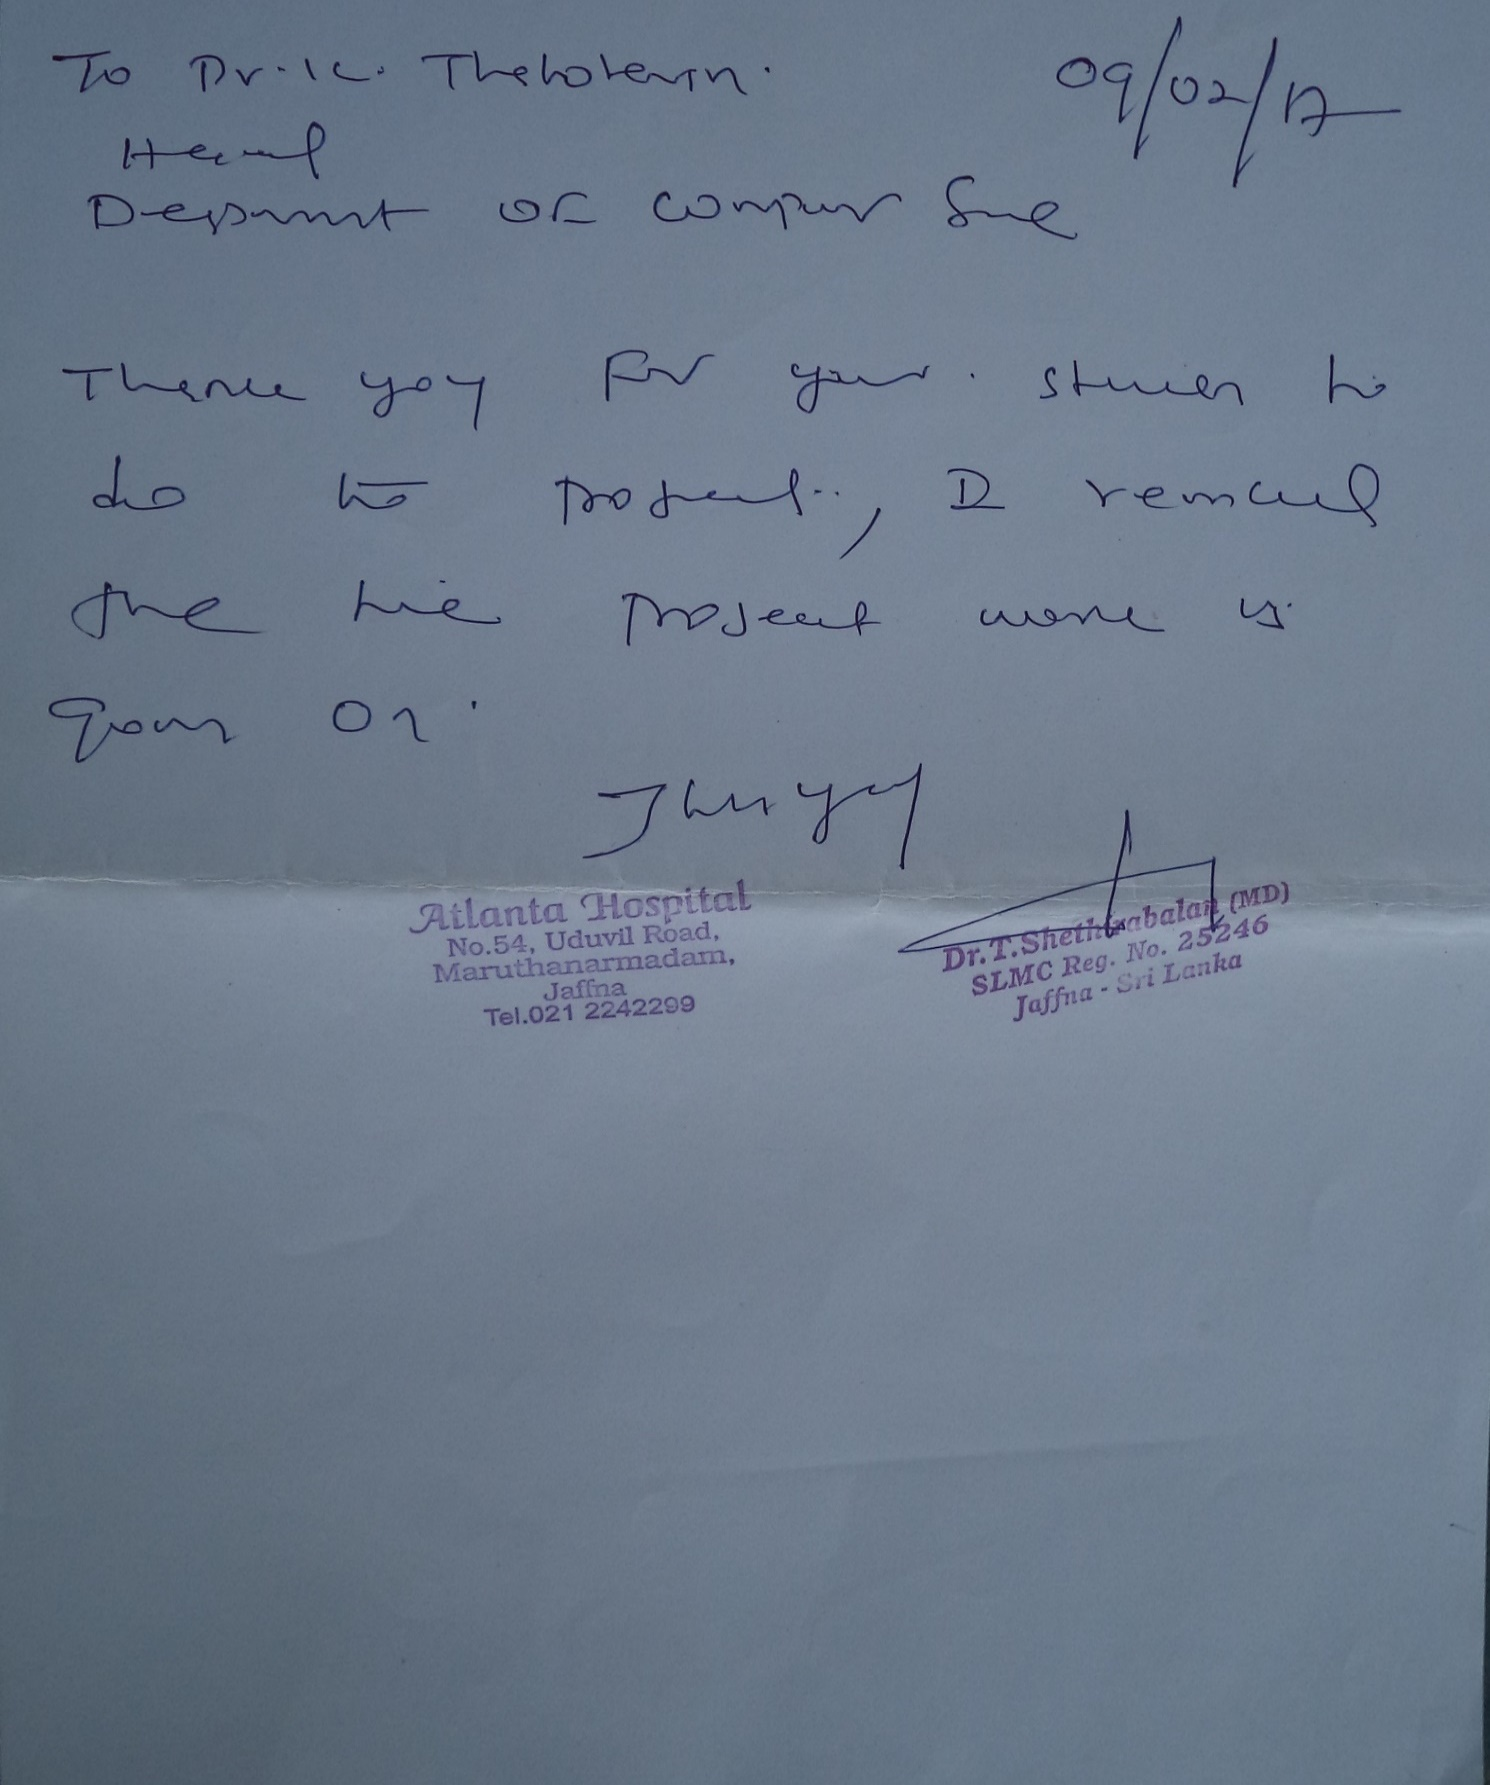 To Dr. K.
09/02/17
Head
Department of Computer
Thank you for your student to
do the project, I
the the project work is
going on.
Thank you
Atlanta Hospital
No.54, Uduvil Road,
Maruthanarmadam,
Jaffna
Tel.021 2242299
Dr.T.Shethirabalan (MD)
SLMC Reg. No. 25246
Jaffna - Sri Lanka